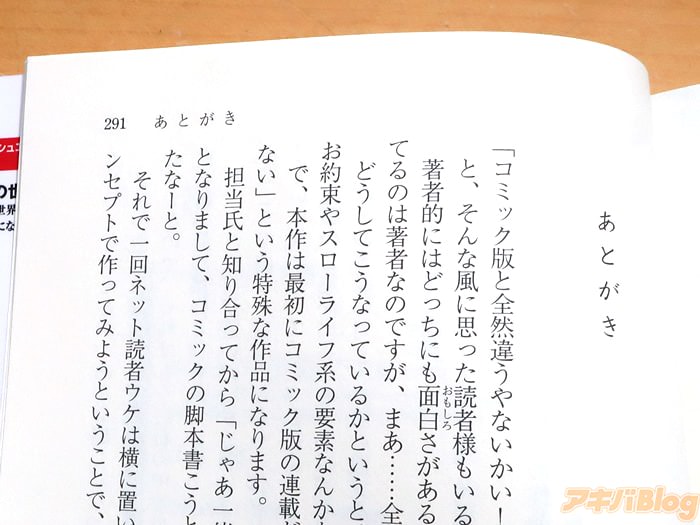 291 あとがき
あとがき
「コミック版と全然違うやないかい！
と、そんな風に思った読者様もいる
著者的にはどっちにも面白さがある
おもしろ
てるのは著者なのですが、まあ……全
どうしてこうなっているかというと
お約束やスローライフ系の要素なんか
で、本作は最初にコミック版の連載が
ない」という特殊な作品になります。
担当氏と知り合ってから「じゃあ一
となりまして、コミックの脚本書こうと
たなーと。
それで一回ネット読者ウケは横に置い
ンセプトで作ってみようということで、
シュコ
の世
世界
にな
アキバBlog